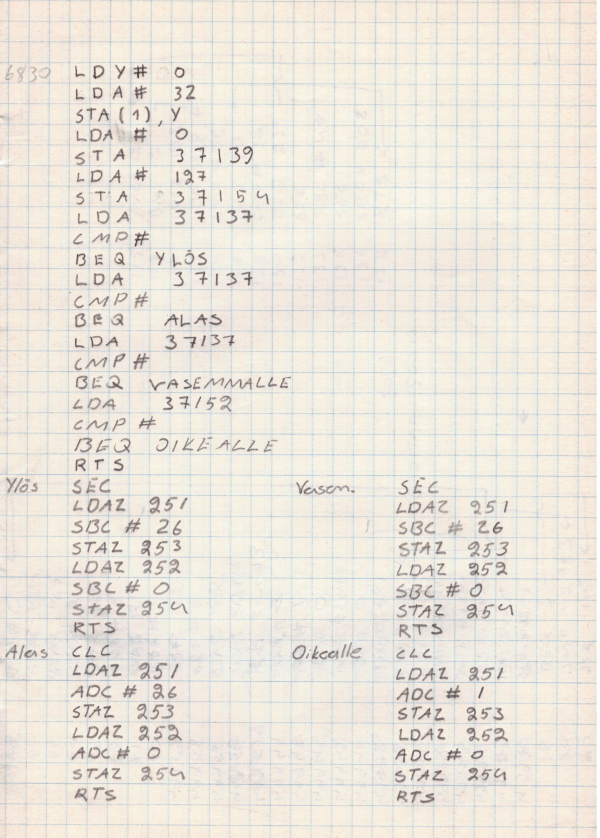 6830 LDY# 0
LDA# 32
STA(1),Y
LDA # 0
STA 37139
LDA # 127
STA 37154
LDA 37137
CMP#
BEQ YLÖS
LDA 37137
CMP#
BEQ ALAS
LDA 37137
CMP#
BEQ VASEMMALLE
LDA 37152
CMP #
BEQ OIKEALLE
RTS
Ylös SEC
LDAZ 251
SBC # 26
STAZ 253
LDAZ 252
SBC # 0
STAZ 254
RTS
Alas CLC
LDAZ 251
ADC # 26
STAZ 253
LDAZ 252
ADC # 0
STAZ 254
RTS
Vasem. SEC
LDAZ 251
SBC # 26
STAZ 253
LDAZ 252
SBC # 0
STAZ 254
RTS
Oikealle CLC
LDAZ 251
ADC # 1
STAZ 253
LDAZ 252
ADC # 0
STAZ 254
RTS